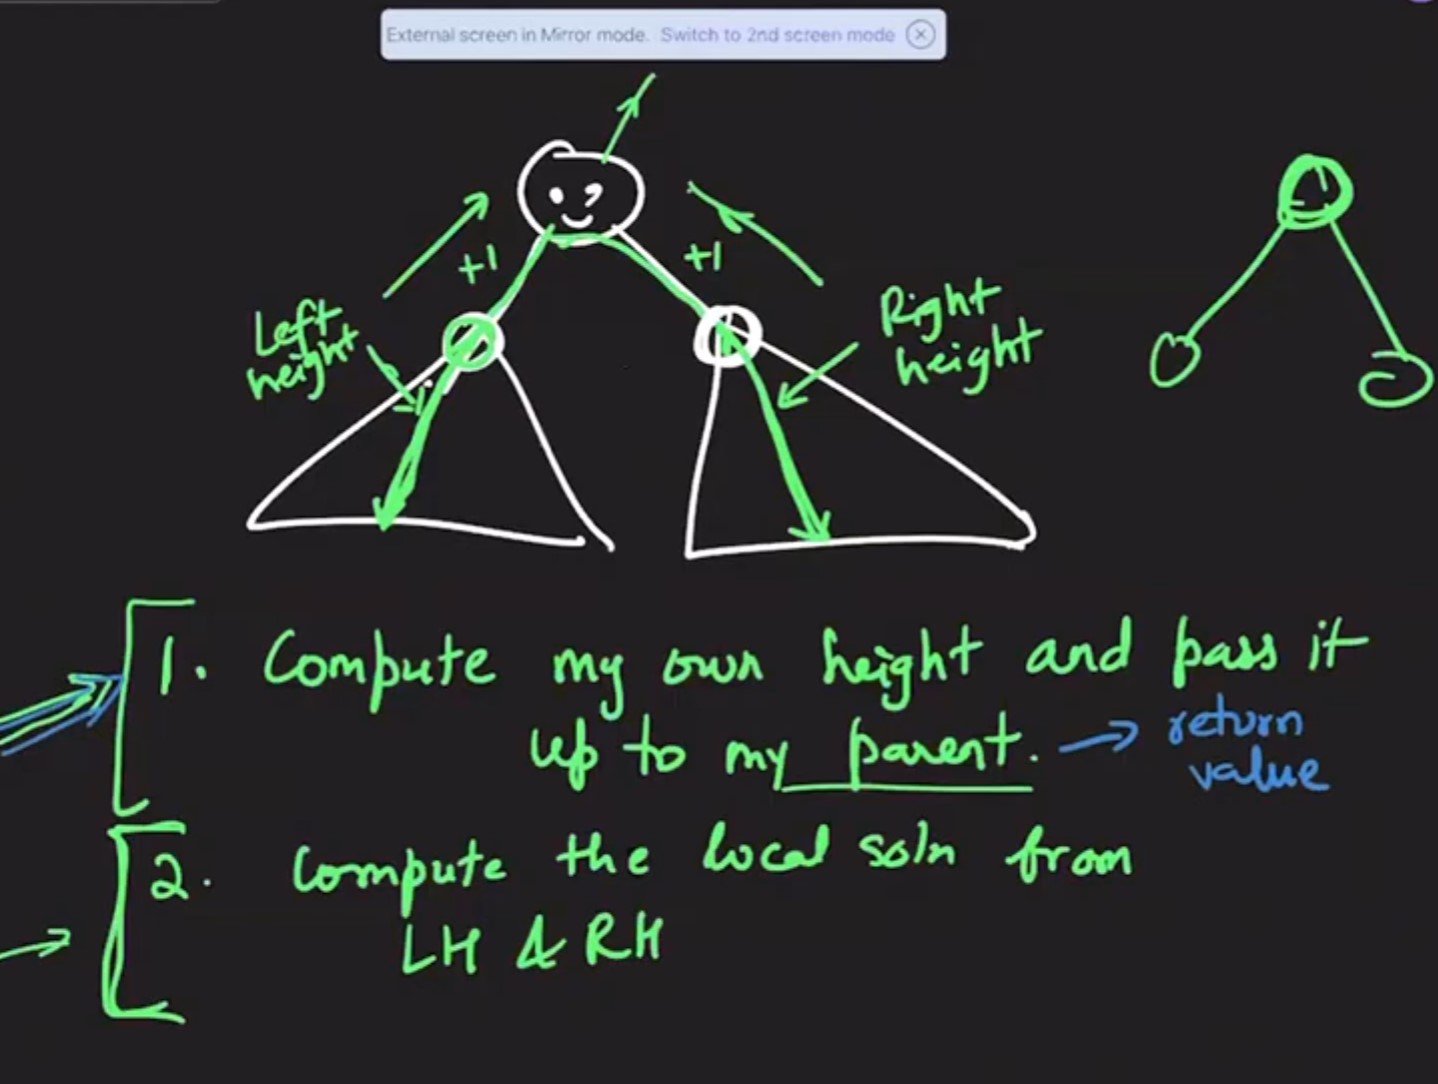 External screen in Mirror mode. Switch to 2nd screen mode
+1
+1
Left
height
Right
height
1. Compute my own height and pass it
up to my parent. → return
value
2. Compute the local soln from
LH & RH